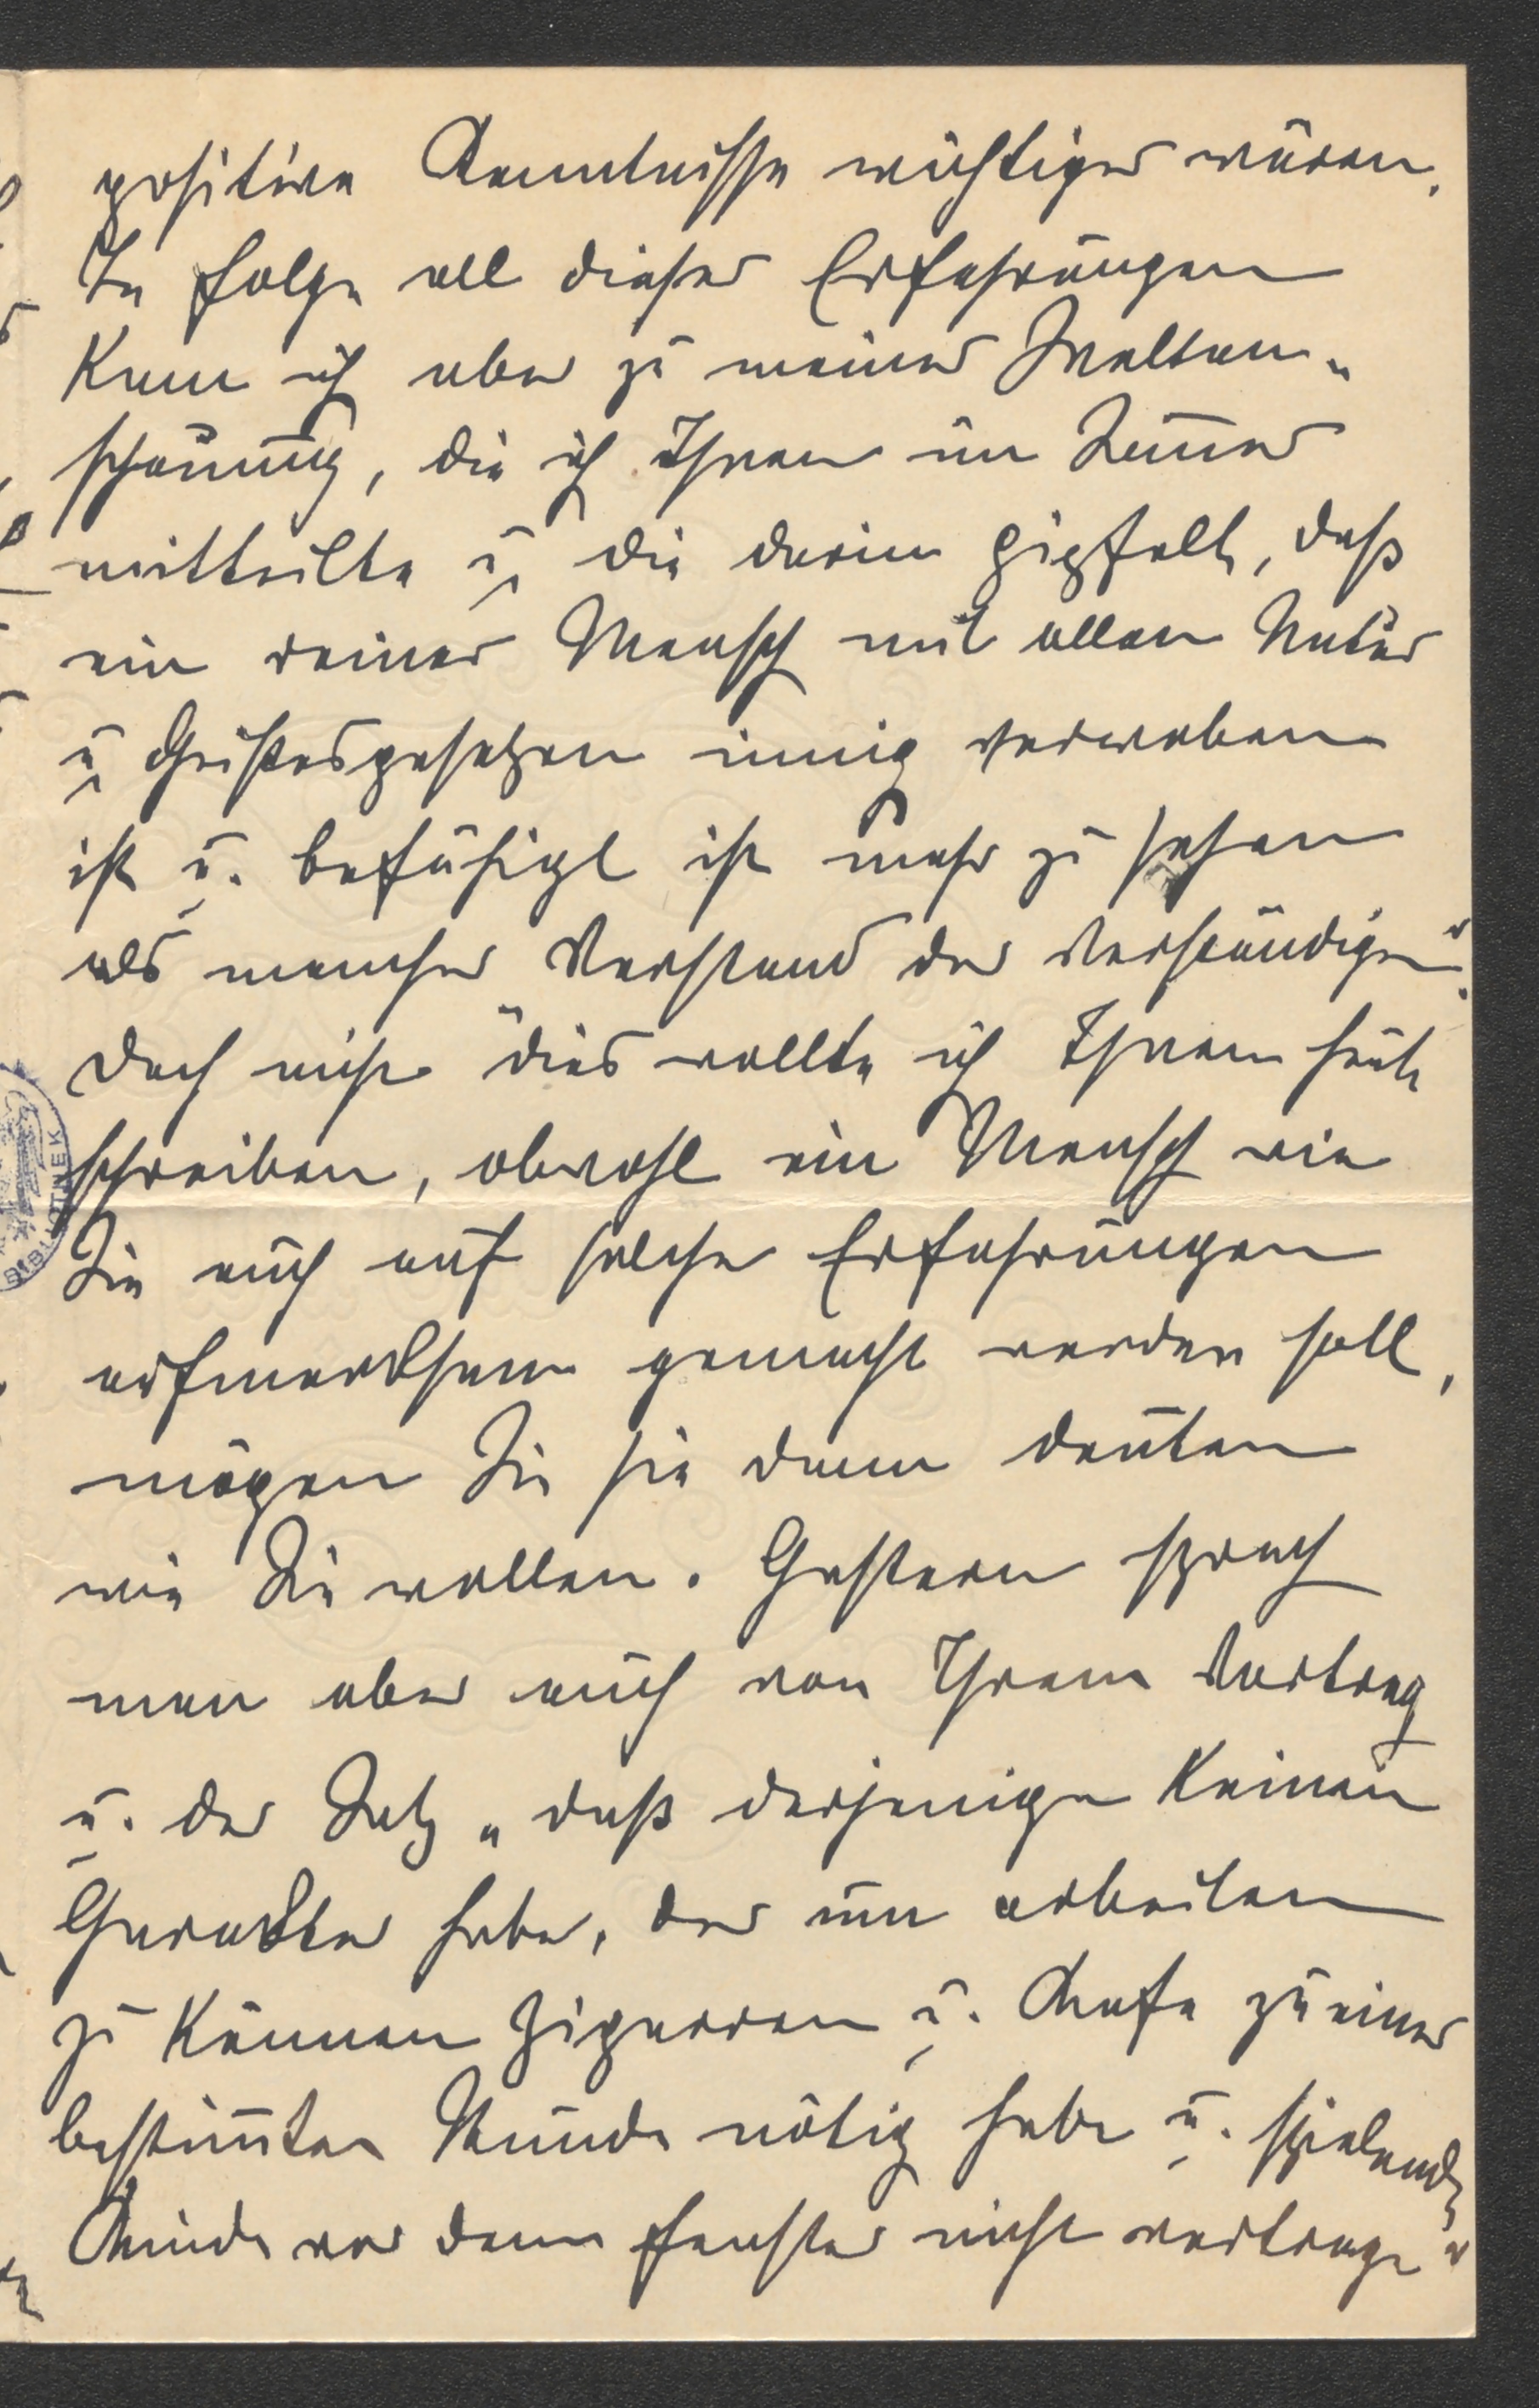 positive Kenntnisse wichtiger wären.
In folge all dieser Erfahrungen
kam ich aber zu meiner Weltan„
schauung, die ich Ihnen im
mitteilte u die darin gipfelt, daß
ein reiner Mensch mit allen Natur
u Geistesgesetzen innig verwoben
ist u. befähigt ist mehr zu sehen
als mancher „Verstand der Verständigen“.
Doch nicht dies wollte ich Ihnen heute
schreiben, obwohl ein Mensch wie
Sie auch auf solche Erfahrungen
aufmerksam gemacht werden soll,
mögen Sie sie dann deuten
wie Sie wollen. Gestern sprach
man aber auch von Ihrem Vortrag
u. der Satz „daß derjenige keinen
Charakter habe, der um arbeiten
zu können Zigarren u. Kafe zu einer
bestimmten Stunde nötig habe u. spielende
Kinder vor dem Fenster nicht vertrage“
BIBLIOTHEK